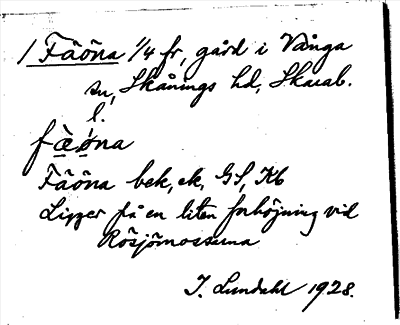 1 Fåöna 1/4 fr, gård i Vånga
sn, Skånings hd, Skarab.
l.
fæ̀ǿna
Fåöna bek, ek, GS, Kb
Ligger på en liten förhöjning vid
Rösjömossarna
I. Lundahl 1928.